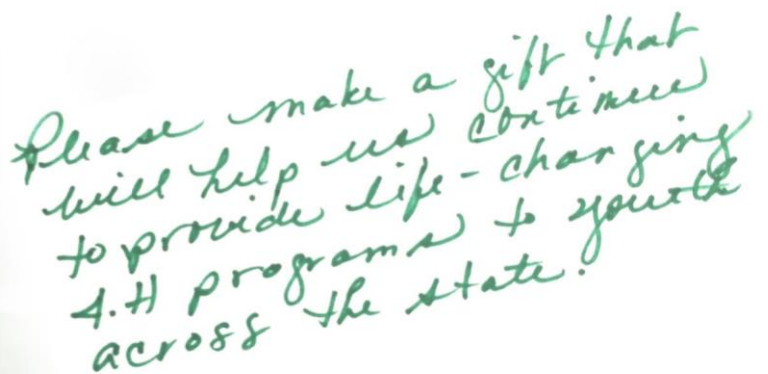 Please make a gift that
will help us continue
to provide life-changing
4-H programs to youth
across the state.